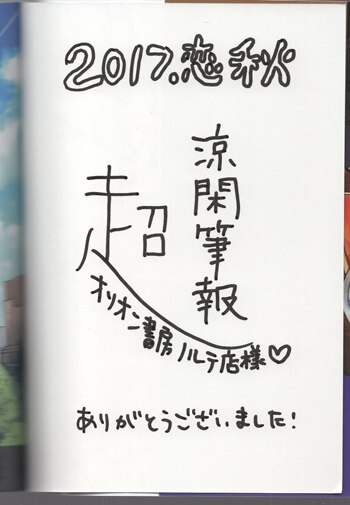 2017.恋秋
涼閑筆報
超
オリオン書房ノルテ店様♡
ありがとうございました!